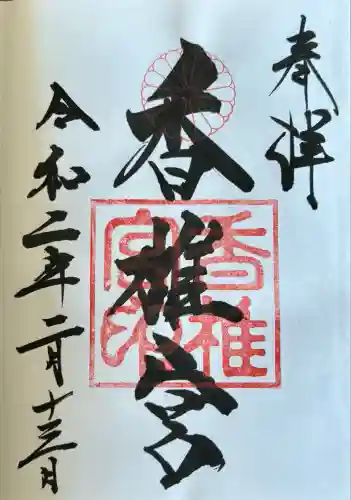 奉拝
香椎宮
令和二年二月十三日
香椎宮印